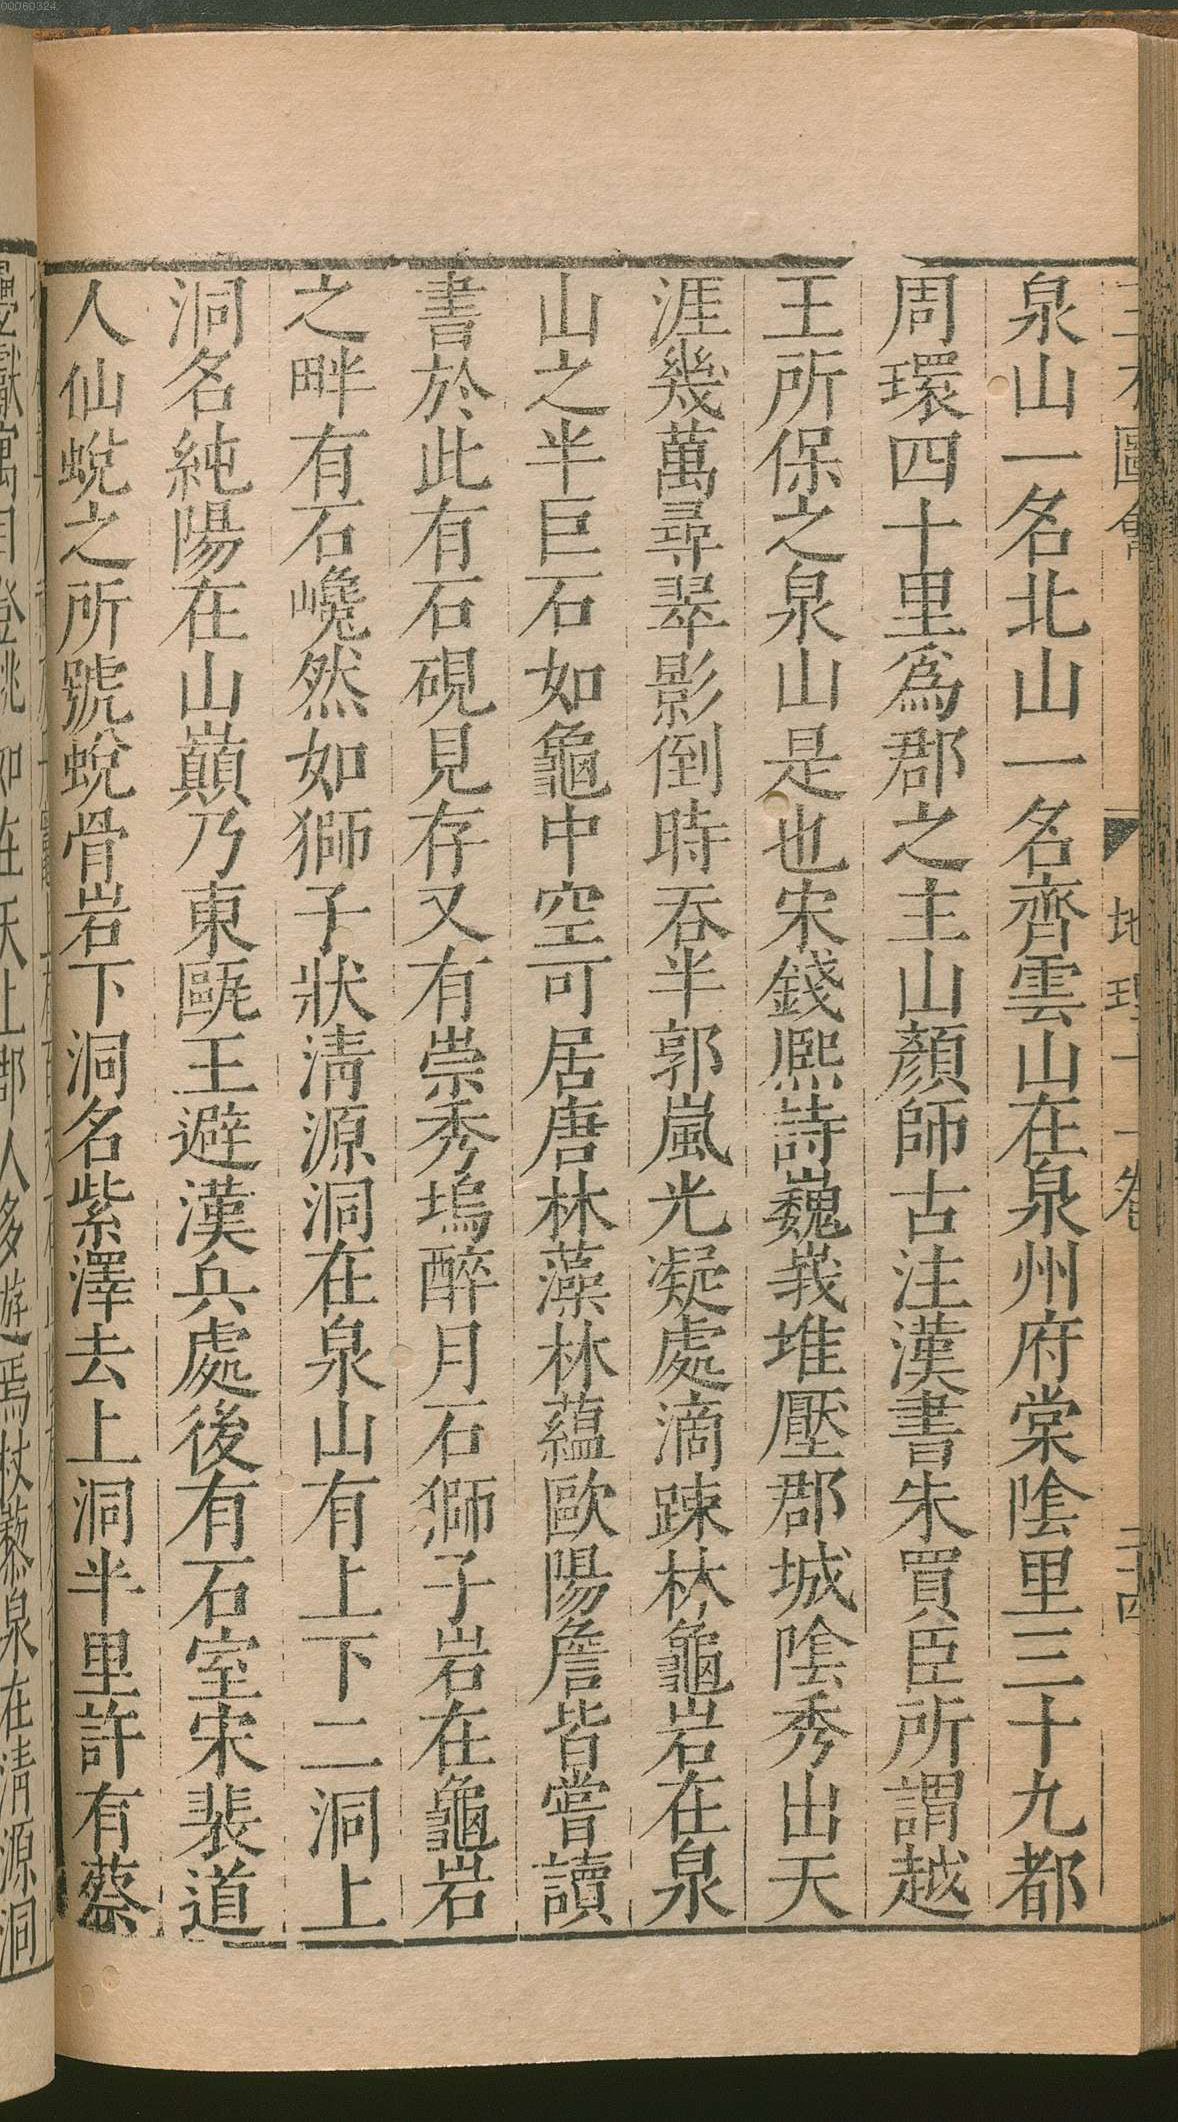 泉山一名北山一名齊雲山在泉州府棠陰里三十九都
周環四十里爲郡之主山顏師古注漢書朱買臣所謂越
王所保之泉山是也宋錢熙詩巍峩堆壓郡城陰秀出天
涯幾萬尋翠影倒時吞半郭嵐光凝處滴踈林龜岩在泉
山之半巨石如龜中空可居唐林藻林蘊歐陽詹皆嘗讀
書於此有石硯見存又有崇秀塢醉月石獅子岩在龜岩
之畔有石巉然如獅子狀清源洞在泉山有上下二洞上
洞名純陽在山巔乃東甌王避漢兵處後有石室宋裴道
人仙蛻之所號蛻骨岩下洞名紫澤去上洞半里許有蔡